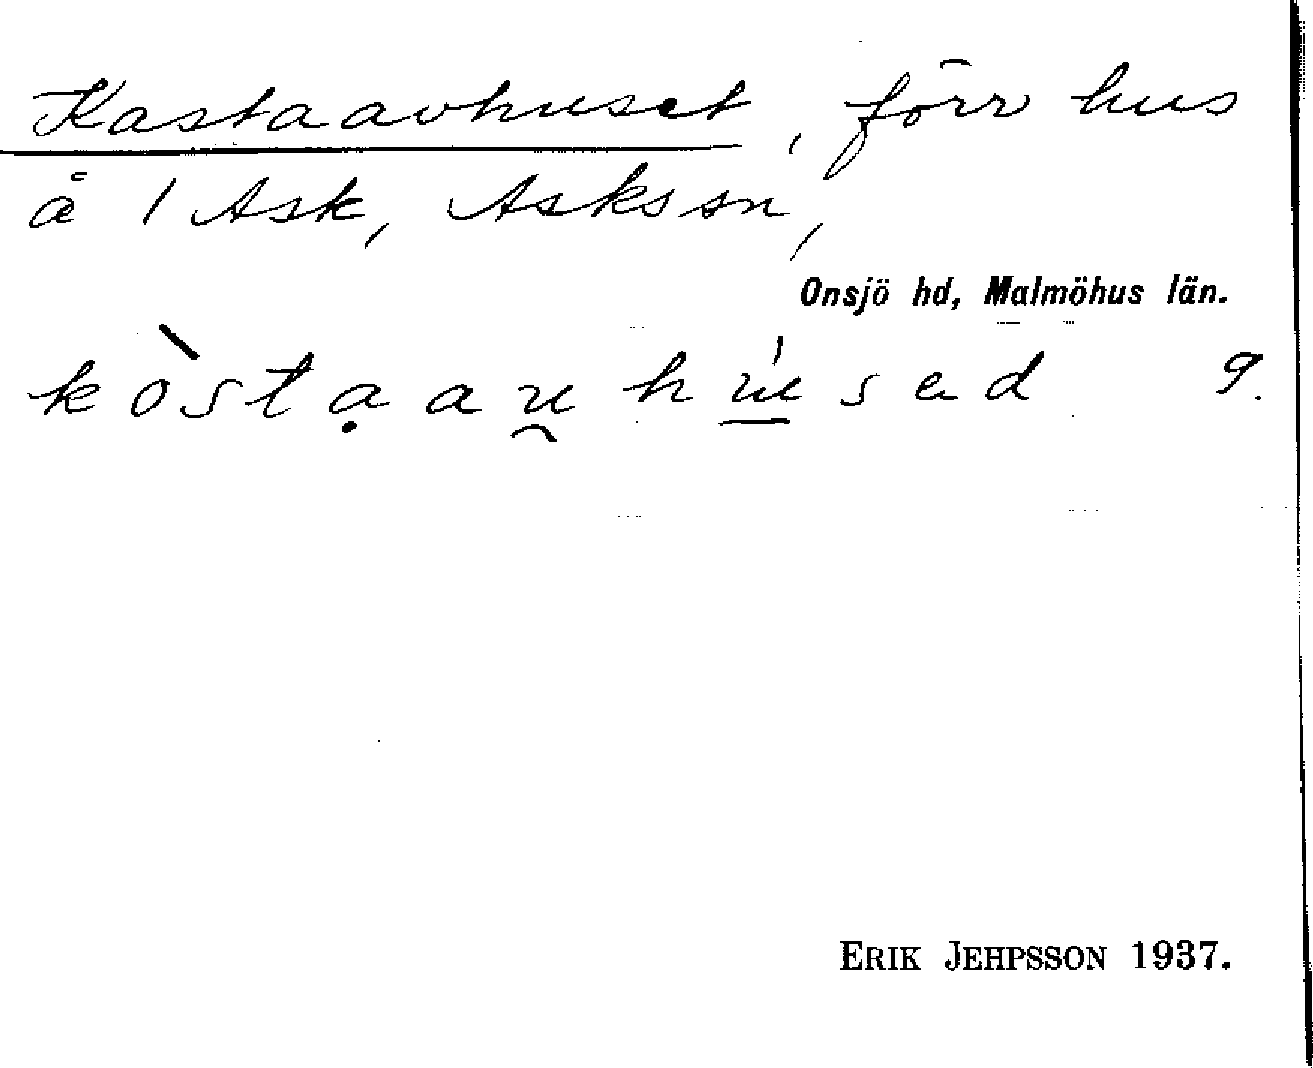 Kastaavhuset, förr hus
å 1 Ask, Asks sn,
Onsjö hd, Malmöhus län.
kòstạau̯hú̲sad 9.
ERIK JEHPSSON 1937.